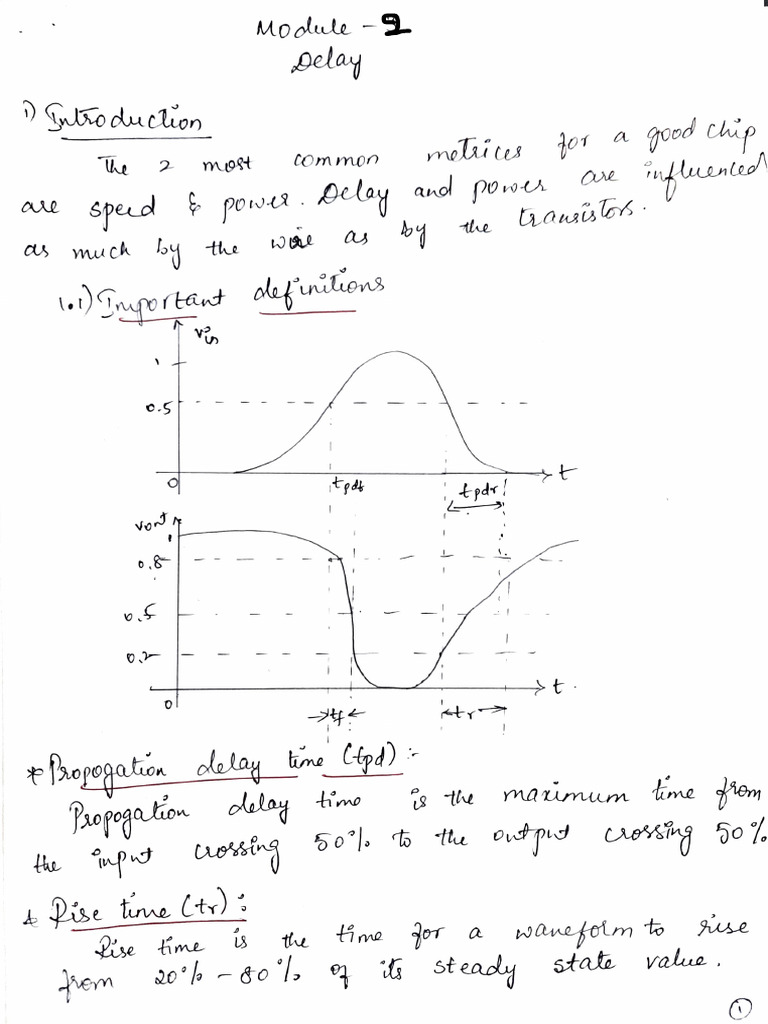 Module - 2
Delay
1) Introduction
The 2 most common metrices for a good chip
are speed & power. Delay and power are influenced
as much by the wire as by the transistors.
1.1) Important definitions
Vin
1
0.5
0
t
tpdf
tpdr
Vout
1
0.8
0.5
0.2
0
t
tf
tr
* Propogation delay time (tpd) :-
Propogation delay time is the maximum time from
the input crossing 50% to the output crossing 50%
* Rise time (tr) :
Rise time is the time for a waveform to rise
from 20% - 80% of its steady state value.
1